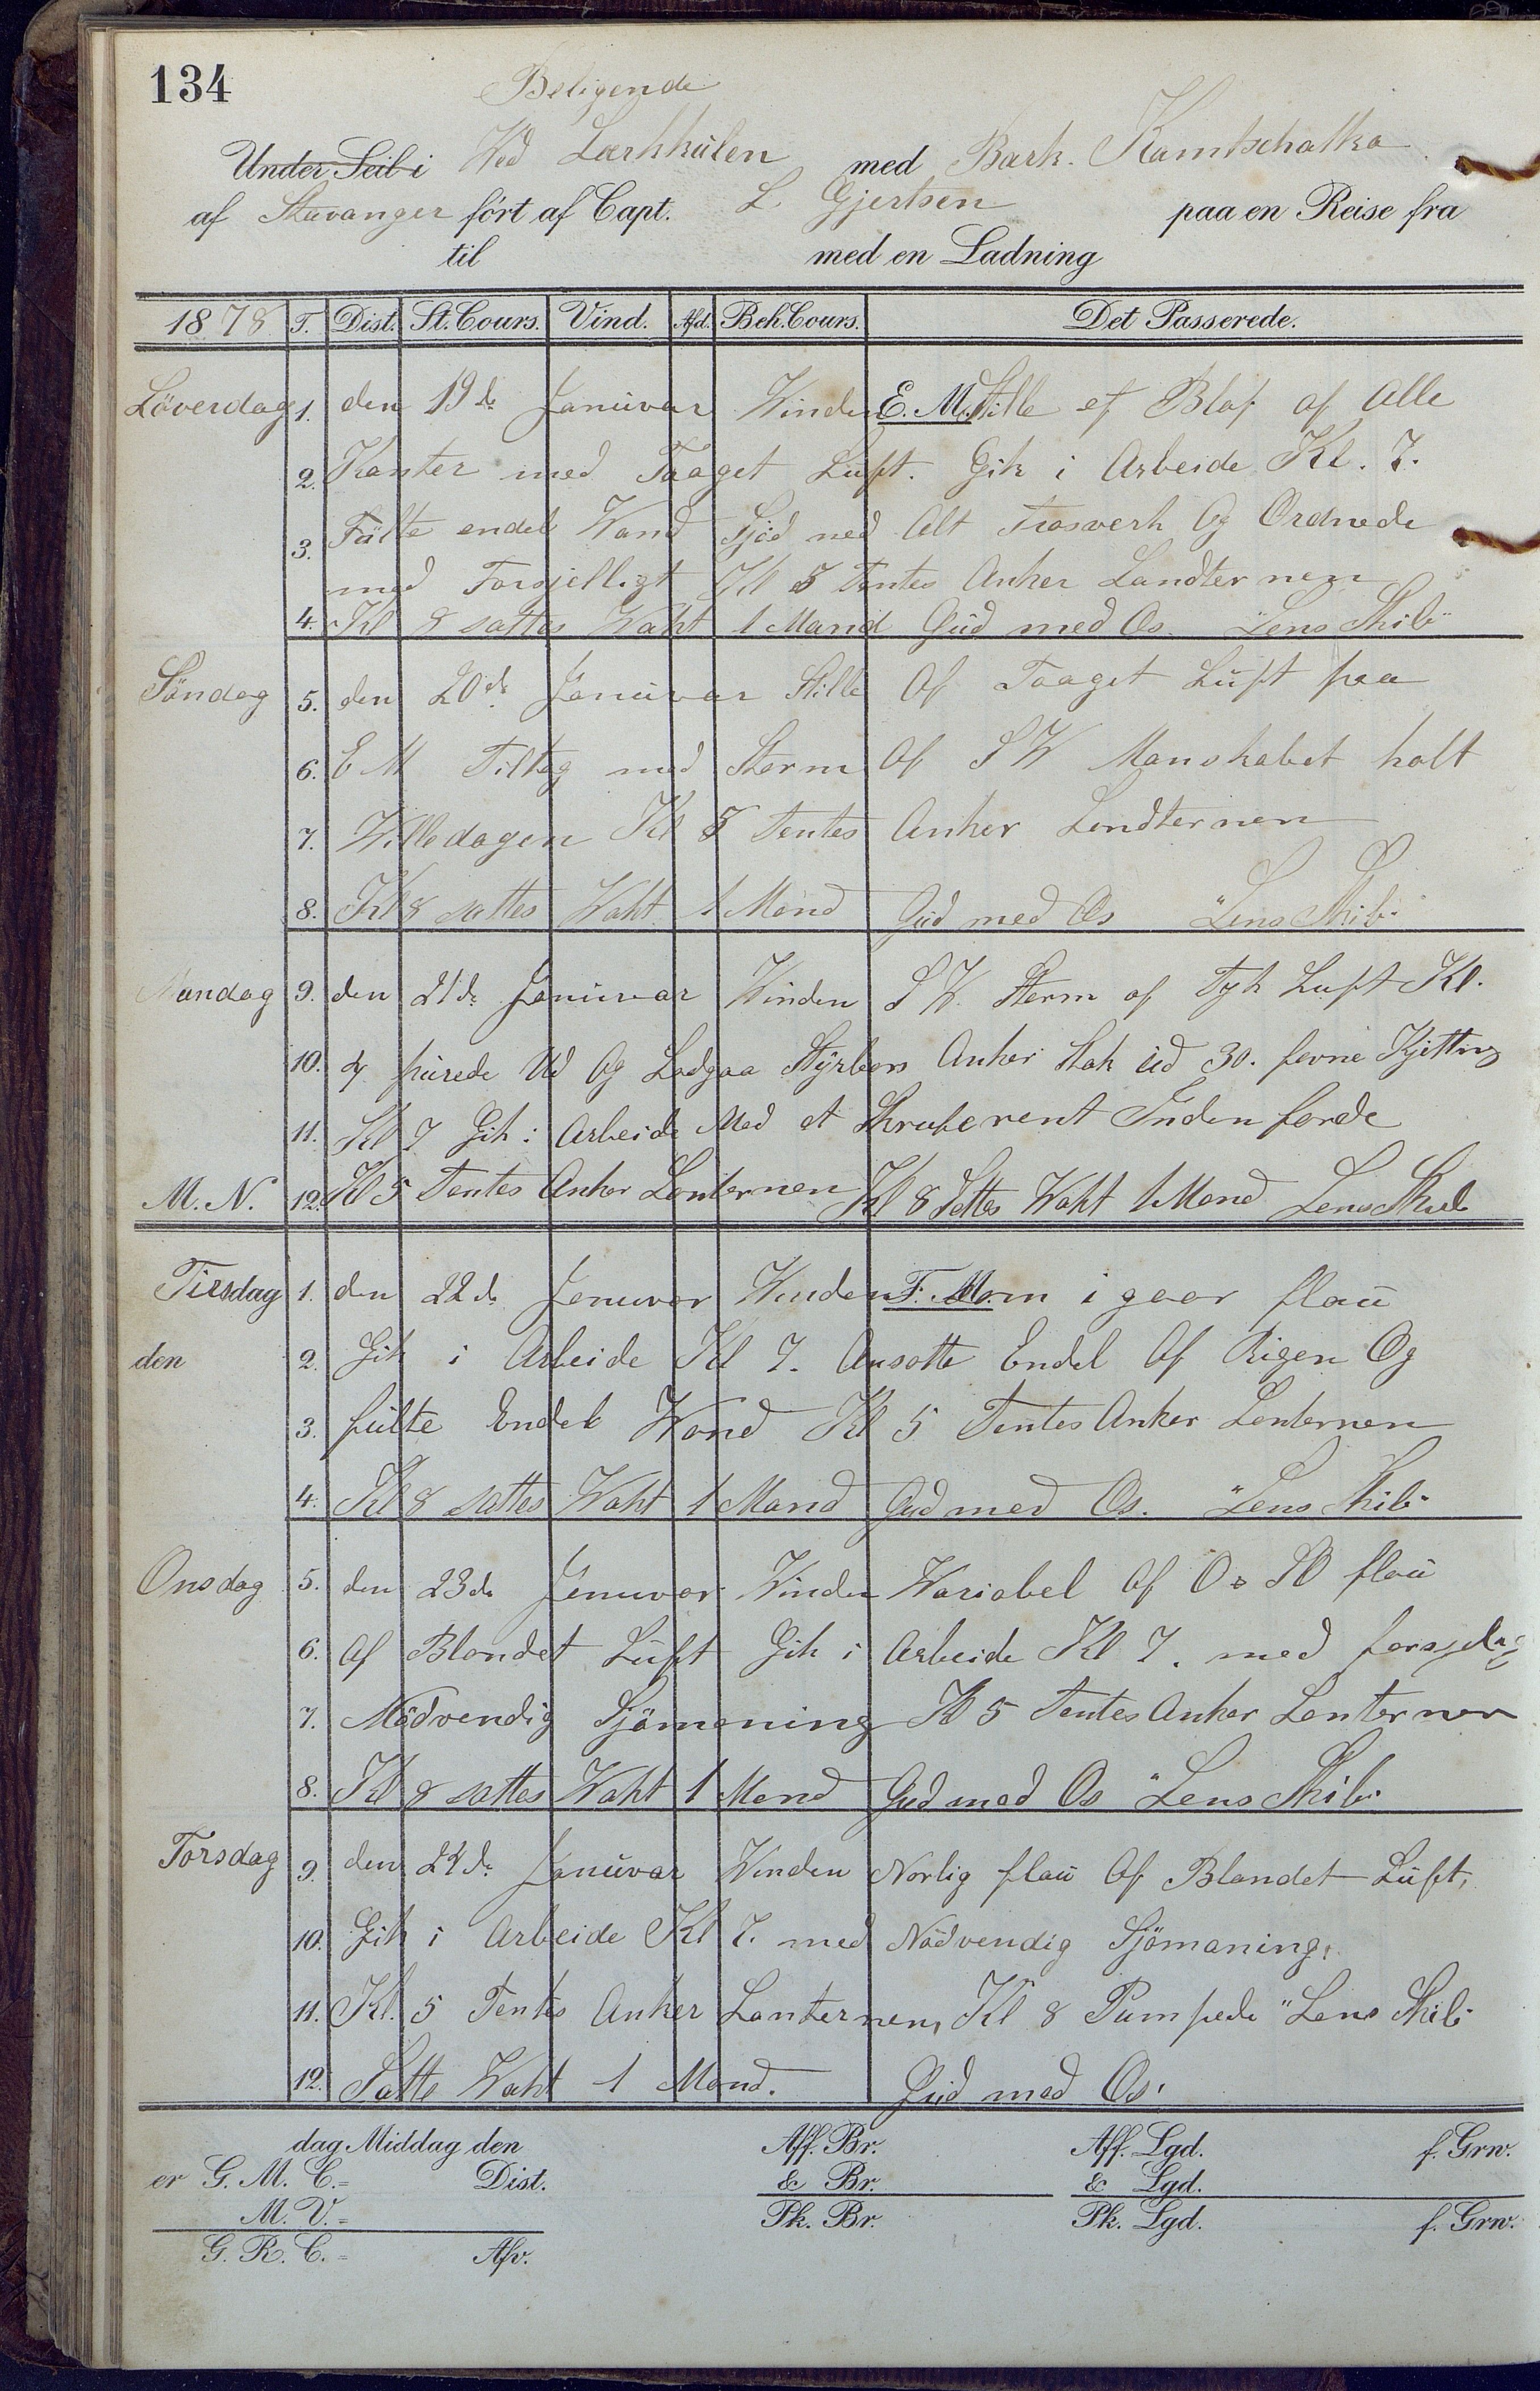 134
Beligende
Under Seil i Ved Larkhulen med Bark. Kamtschatka
af Stavanger fört af Capt. L. Gjertsen paa en Reise fra
til med en Ladning
1878 T. Dist. St. Cours. Vind. Afd. Beh. Cours. Det Passerede.
Löverdag 1. den 19de Januvar Winden E. M. Stille af Blaf af Alle
2. Kanter med Taaget Luft. Gik i Arbeide Kl. 7.
3. Fülte endel Wand ned Alt Og Ordnede
med Forsjelligt Kl 5 Tentes Anker Landternen
4. Kl 8 sattes Waht 1 Mand Gud med Os. "Lens Skib"
Söndag 5. den 20de Januvar Stille Af Taaget Luft paa
6. E M Tiltog med Storm Af S W Manskabet holt
7. Willedagen Kl 5 Tentes Anker Lendternen
8. Kl 8 sattes Waht 1 Mand Gud med Os "Lens Skib"
Mandag 9. den 21de Januvar Winden S W. Storm af Tyk Luft Kl.
10. 4 Ud Og Styrbors Anker Stak ud 30. favne Kjetting
11. Kl 7 Gik i Arbeide Med at rent Inden forde
M. N. 12. Kl 5 Tentes Anker Lenternen Kl 8 Sattes Waht 1 Mand Lens Skib
Tirsdag 1. den 22de Januvar Winden F. M. Som i gaar flau
den 2. Gik i Arbeide Kl 7. Ansatte Endel Af Rigen Og
3. fülte Endel Wand Kl 5 Tentes Anker Lenternen
4. Kl 8 sattes Waht 1 Mand Gud med Os. "Lens Skib"
Onsdag 5. den 23de Januvar Winden Wariabel Af O & SO flau
6. Af Blandet Luft Gik i Arbeide Kl 7. med
7. Nödvendig Sjömaning Kl 5 Tentes Anker Lenternen
8. Kl 8 sattes Waht 1 Mand Gud med Os "Lens Skib"
Torsdag 9. den 24de Januvar Winden Norlig flau Af Blandet Luft,
10. Gik i Arbeide Kl 7. med Nödvendig Sjömaning,
11. Kl. 5 Tentes Anker Lanternen, Kl 8 Pumpede "Lens Skib"
12. Satte Waht 1 Mand. Gud med Os.
dag Middag den Aff. Br. Aff. Lgd. f. Grw.
er G. M. C. = Dist. & Br. & Lgd.
M. V. = Pk. Br. Pk. Lgd. f. Grw.
G. R. C. = Afv.